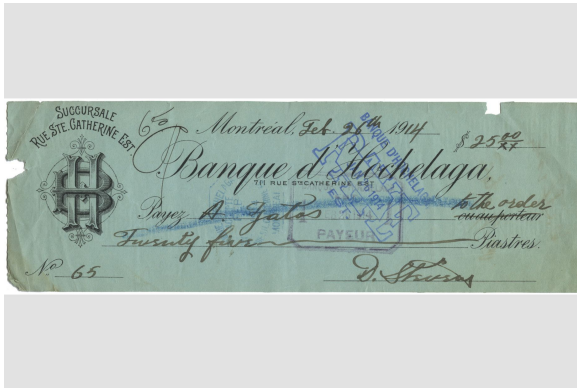 SUCCURSALE
RUE STE. CATHERINE EST
Montréal, Feb. 26th 1914
$25 00/xx
Banque d'Hochelaga,
711 RUE STE CATHERINE EST
BANQUE D'HOCHELAGA
Payez A Gatos to the order
ou au porteur
Twenty five Piastres.
PAYEUR
No 65
D. Stevens